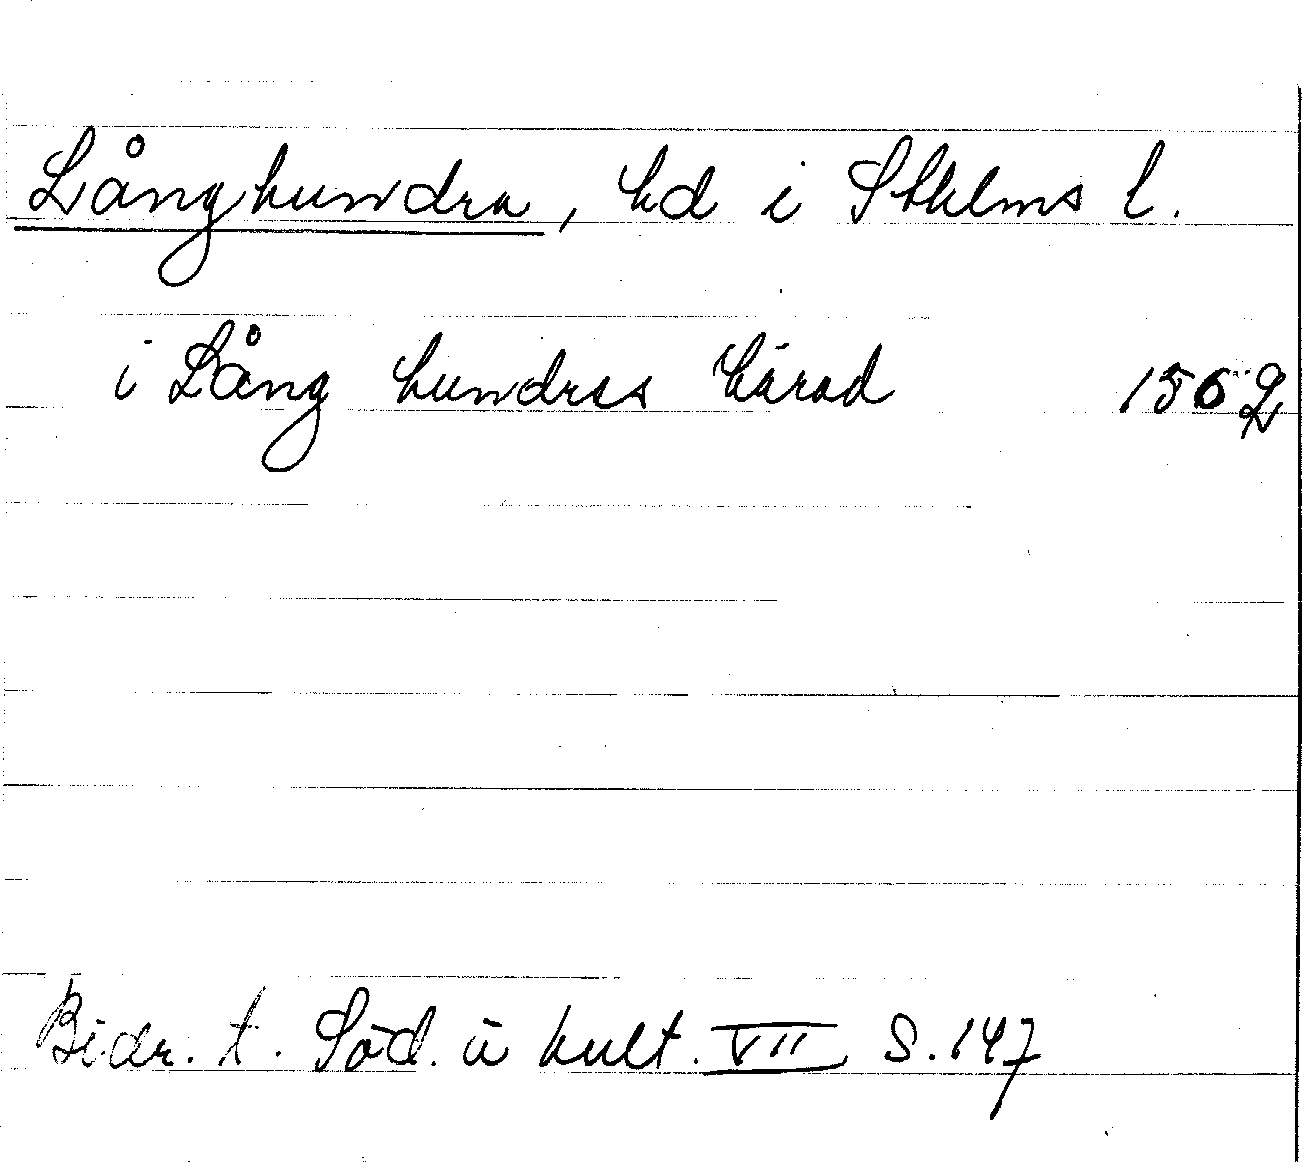 Långhundra, hd i Sthlms l.
i Lång hundras härad 1562
Bidr. t. Söd. ä kult. VII S. 147